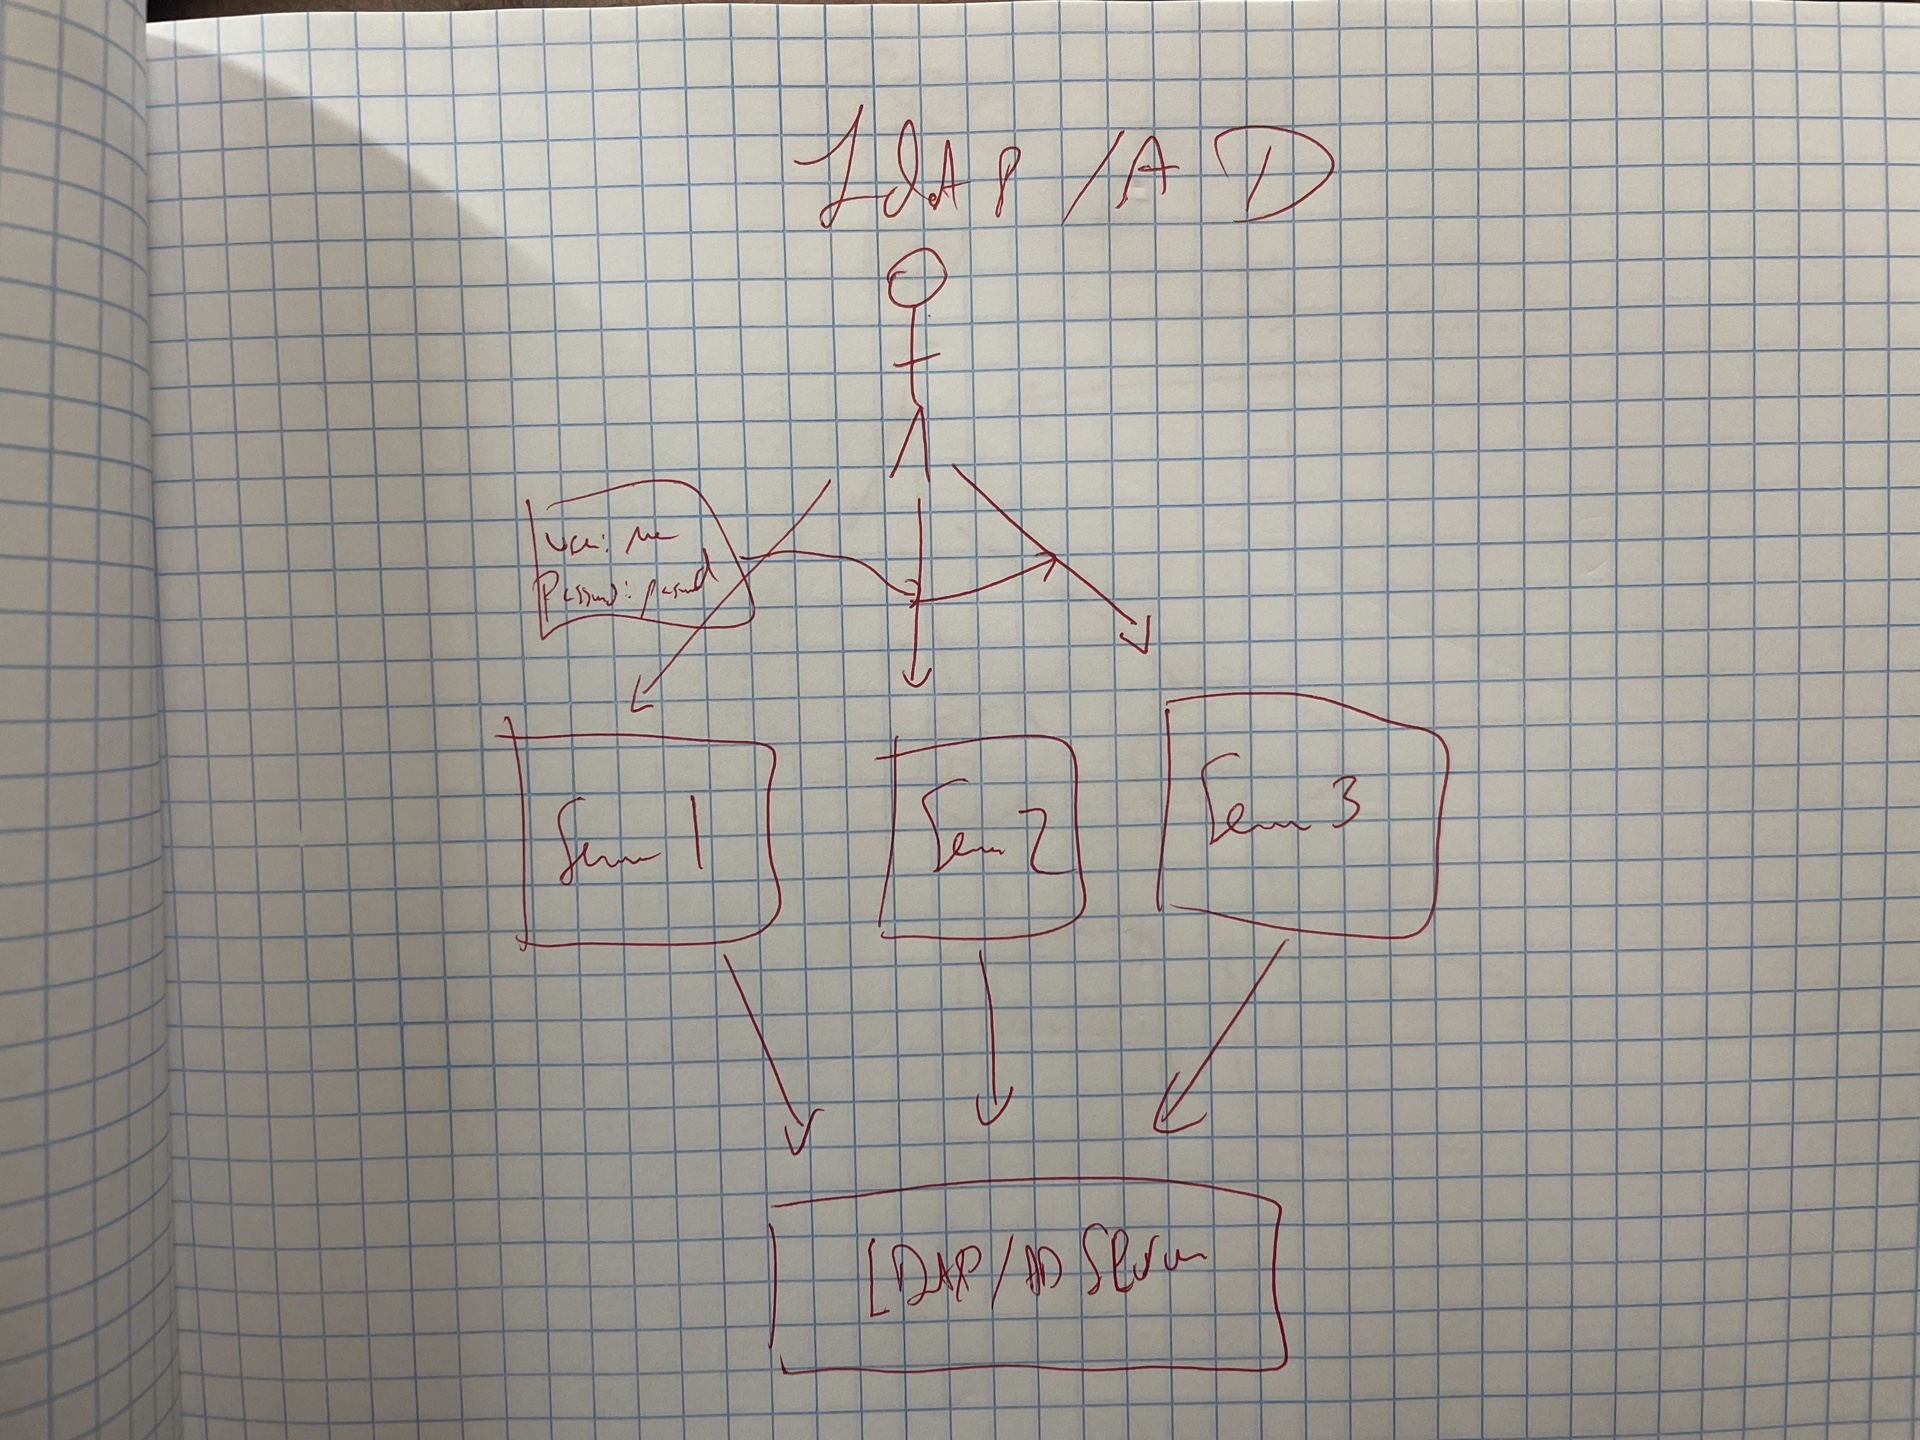 LdAP / AD
User: me
Password: passwd
Server 1
Server 2
Server 3
LDAP/AD Server